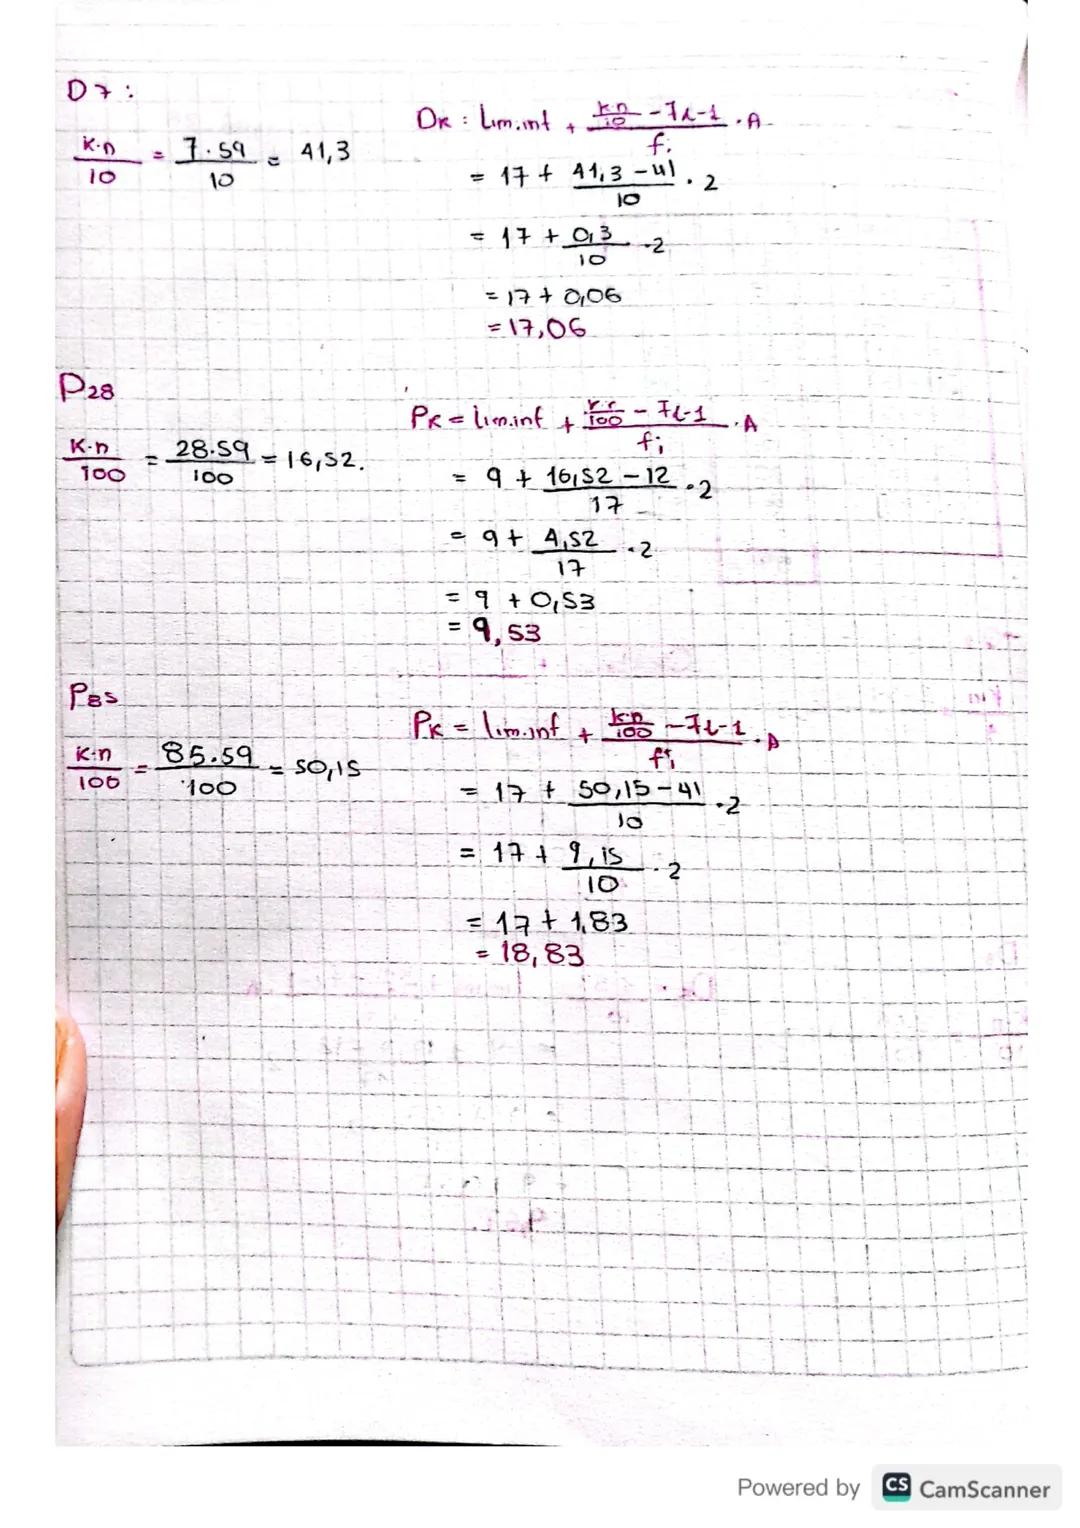 D7:
K·n/10 = 7·59/10 = 41,3
DK : Lim.inf + (k·n/10 - Fi-1)/fi · A
= 17 + (41,3 - 41)/10 · 2
= 17 + 0,3/10 · 2
= 17 + 0,06
= 17,06
P28
K·n/100 = 28·59/100 = 16,52.
PK = lim.inf + (k·n/100 - Fi-1)/fi · A
= 9 + (16,52 - 12)/17 · 2
= 9 + 4,52/17 · 2
= 9 + 0,53
= 9,53
P85
K·n/100 = 85·59/100 = 50,15
PK = lim.inf + (k·n/100 - Fi-1)/fi · A
= 17 + (50,15 - 41)/10 · 2
= 17 + 9,15/10 · 2
= 17 + 1,83
= 18,83
Powered by CS CamScanner